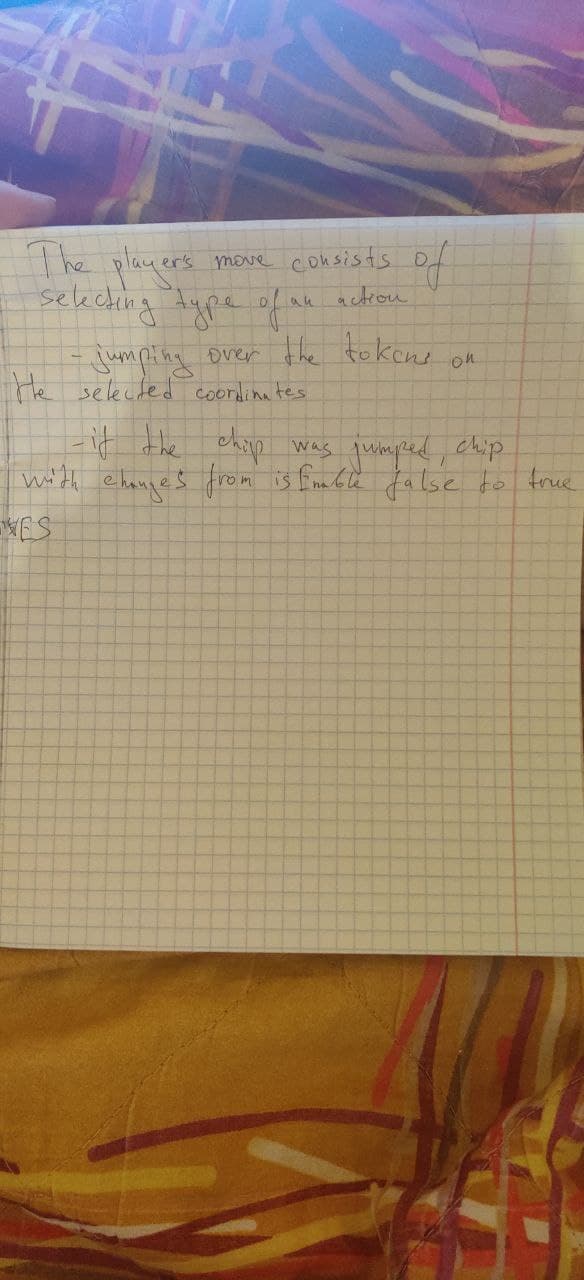 The player's move consists of
selecting type of an action
- jumping over the tokens on
the selected coordinates
- if the chip was jumped, chip
with changes from isEnable false to true
YES